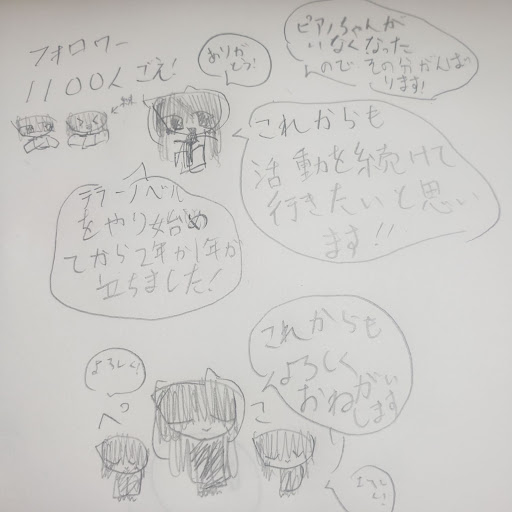 フォロワー
1100人ごえ!
ありが
とう!
ピアノちゃんが
いなくなった
のでその分がんば
ります!
これからも
活動を続けて
行きたいと思い
ます!!
テラーノベル
をやり始め
てから2年か1年が
立ちました!
これからも
よろしく
おねがい
します
よろしく!
ぺこ